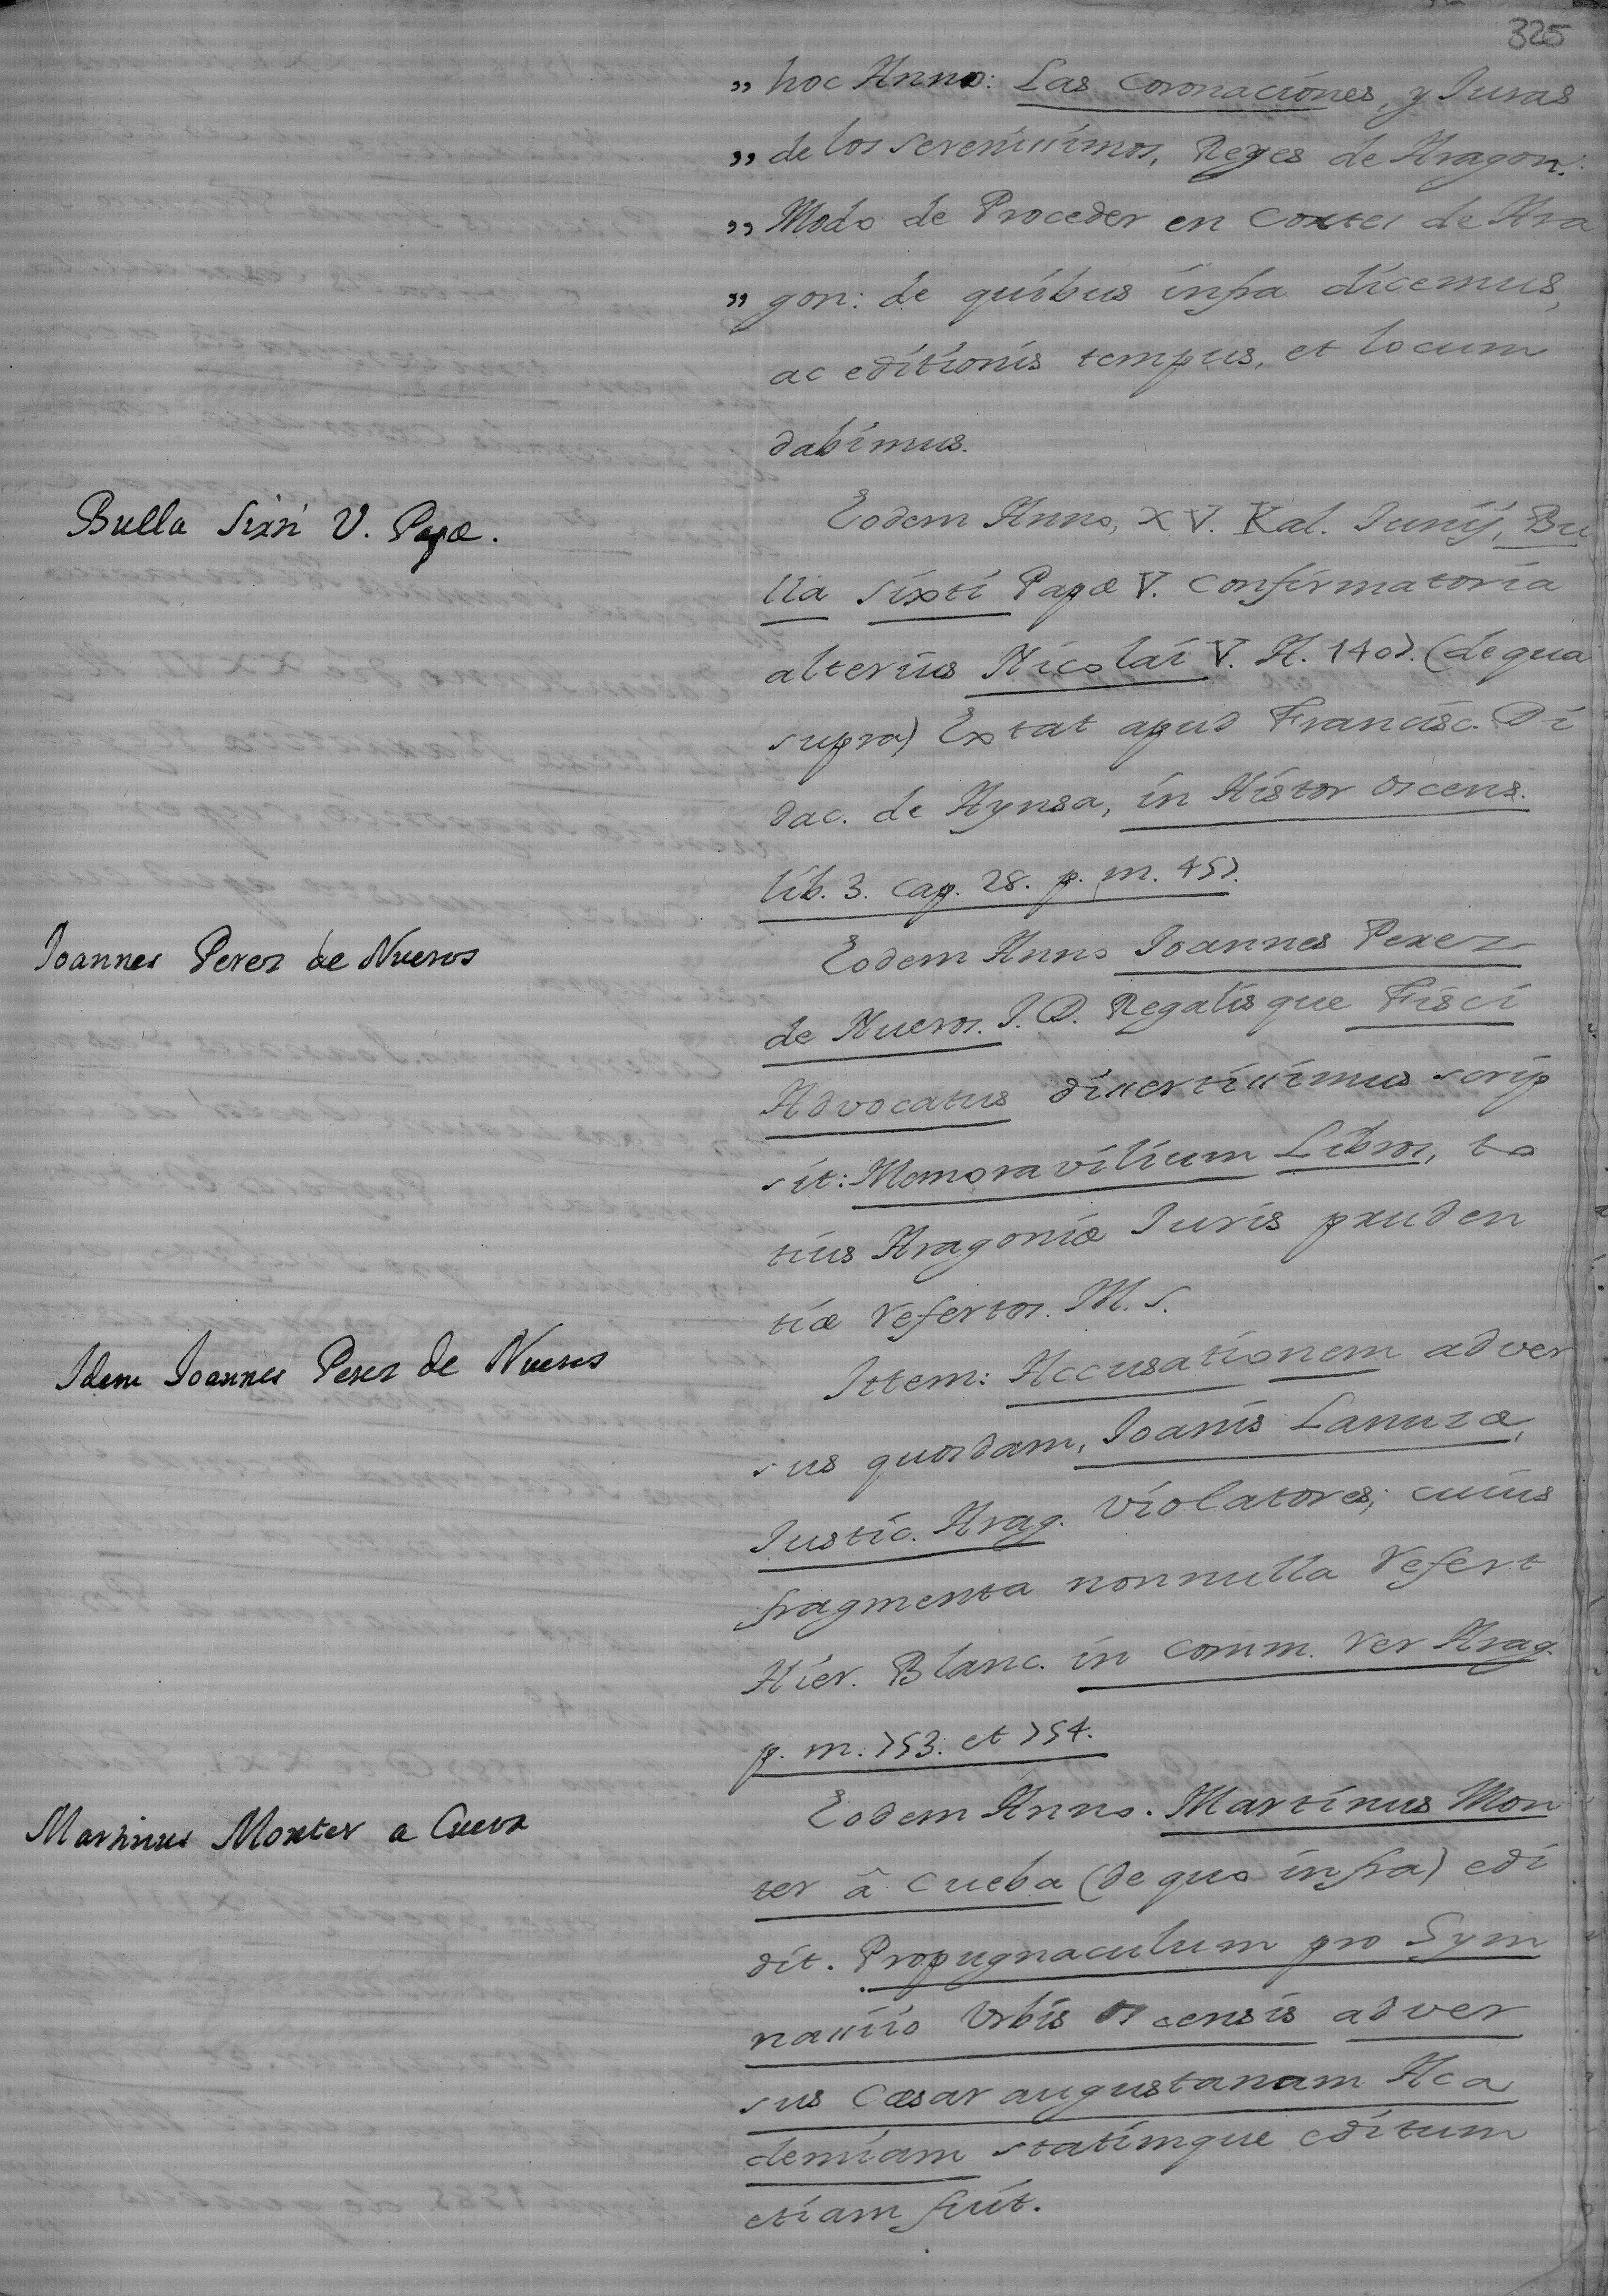 325
„ hoc Anno: Las coronaciones, y Juras
„ de los serenissimos, Reyes de Aragon:
„ Modo de Proceder en Cortes de Ara
„ gon: de quibus infra dicemus,
ac editionis tempus, et locum
dabimus.
Bulla Sixti V. Papæ.
Eodem Anno, XV. Kal. Junij, Bu
lla Sixti Papæ V. confirmatoria
alterius Nicolai V. A. 1407. (de qua
supra) Extat apud Francisc. Di
dac. de Aynsa, in Histor Oscens.
lib. 3. cap. 28. p. m. 457.
Joannes Perez de Nueros
Eodem Anno Joannes Perez
de Nueros. J. D. Regalisque Fisci
Advocatus dissertissimus scrip
sit: Memoravilium Libros, to
tius Aragoniæ Juris pruden
tiæ refertos. M. S.
Idem Joannes Perez de Nueros
Ittem: Accusationem adver
sus quosdam, Joanis Lanuzæ,
Justic. Arag. violatores; cuius
fragmenta nonnulla refert
Hier. Blanc. in comm. rer Arag.
p. m. 753. et 754.
Martinus Monter a Cueva
Eodem Anno. Martinus Mon
ter â Cueba (de quo infra) edi
dit. Propugnaculum pro Gym
nassio Urbis Oscensis adver
sus Cæsar augustanam Aca
demiam statimque editum
etiam fuit.